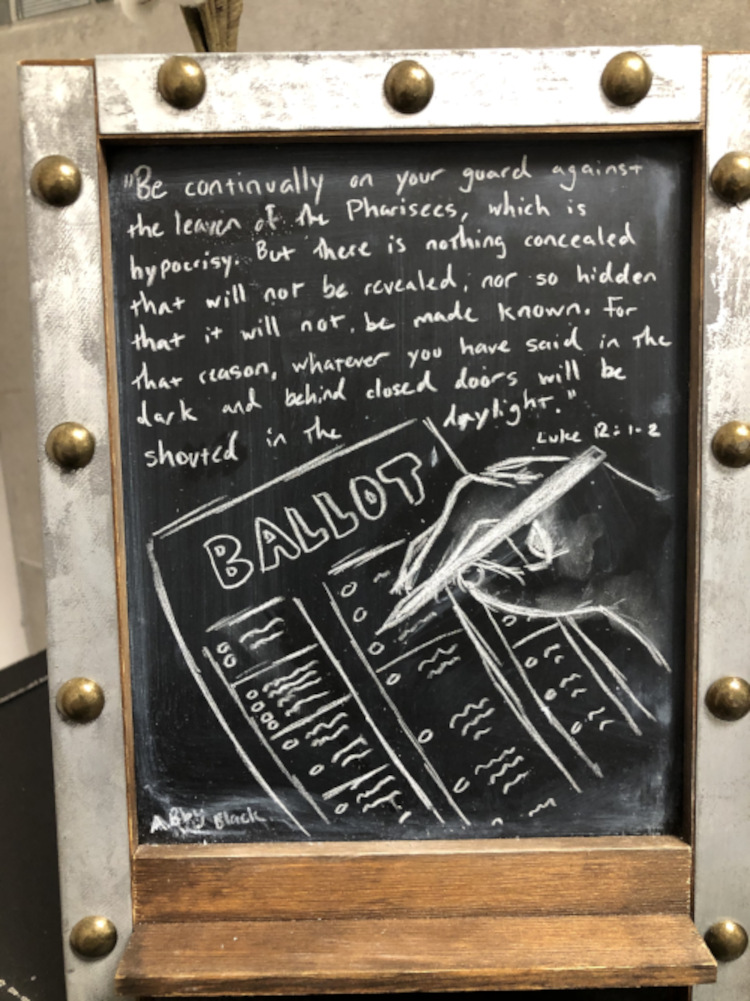 "Be continually on your guard against
the leaven of the Pharisees, which is
hypocrisy. But there is nothing concealed
that will not be revealed, nor so hidden
that it will not be made known. For
that reason, whatever you have said in the
dark and behind closed doors will be
shouted in the daylight."
Luke 12:1-2
BALLOT
Abby Black